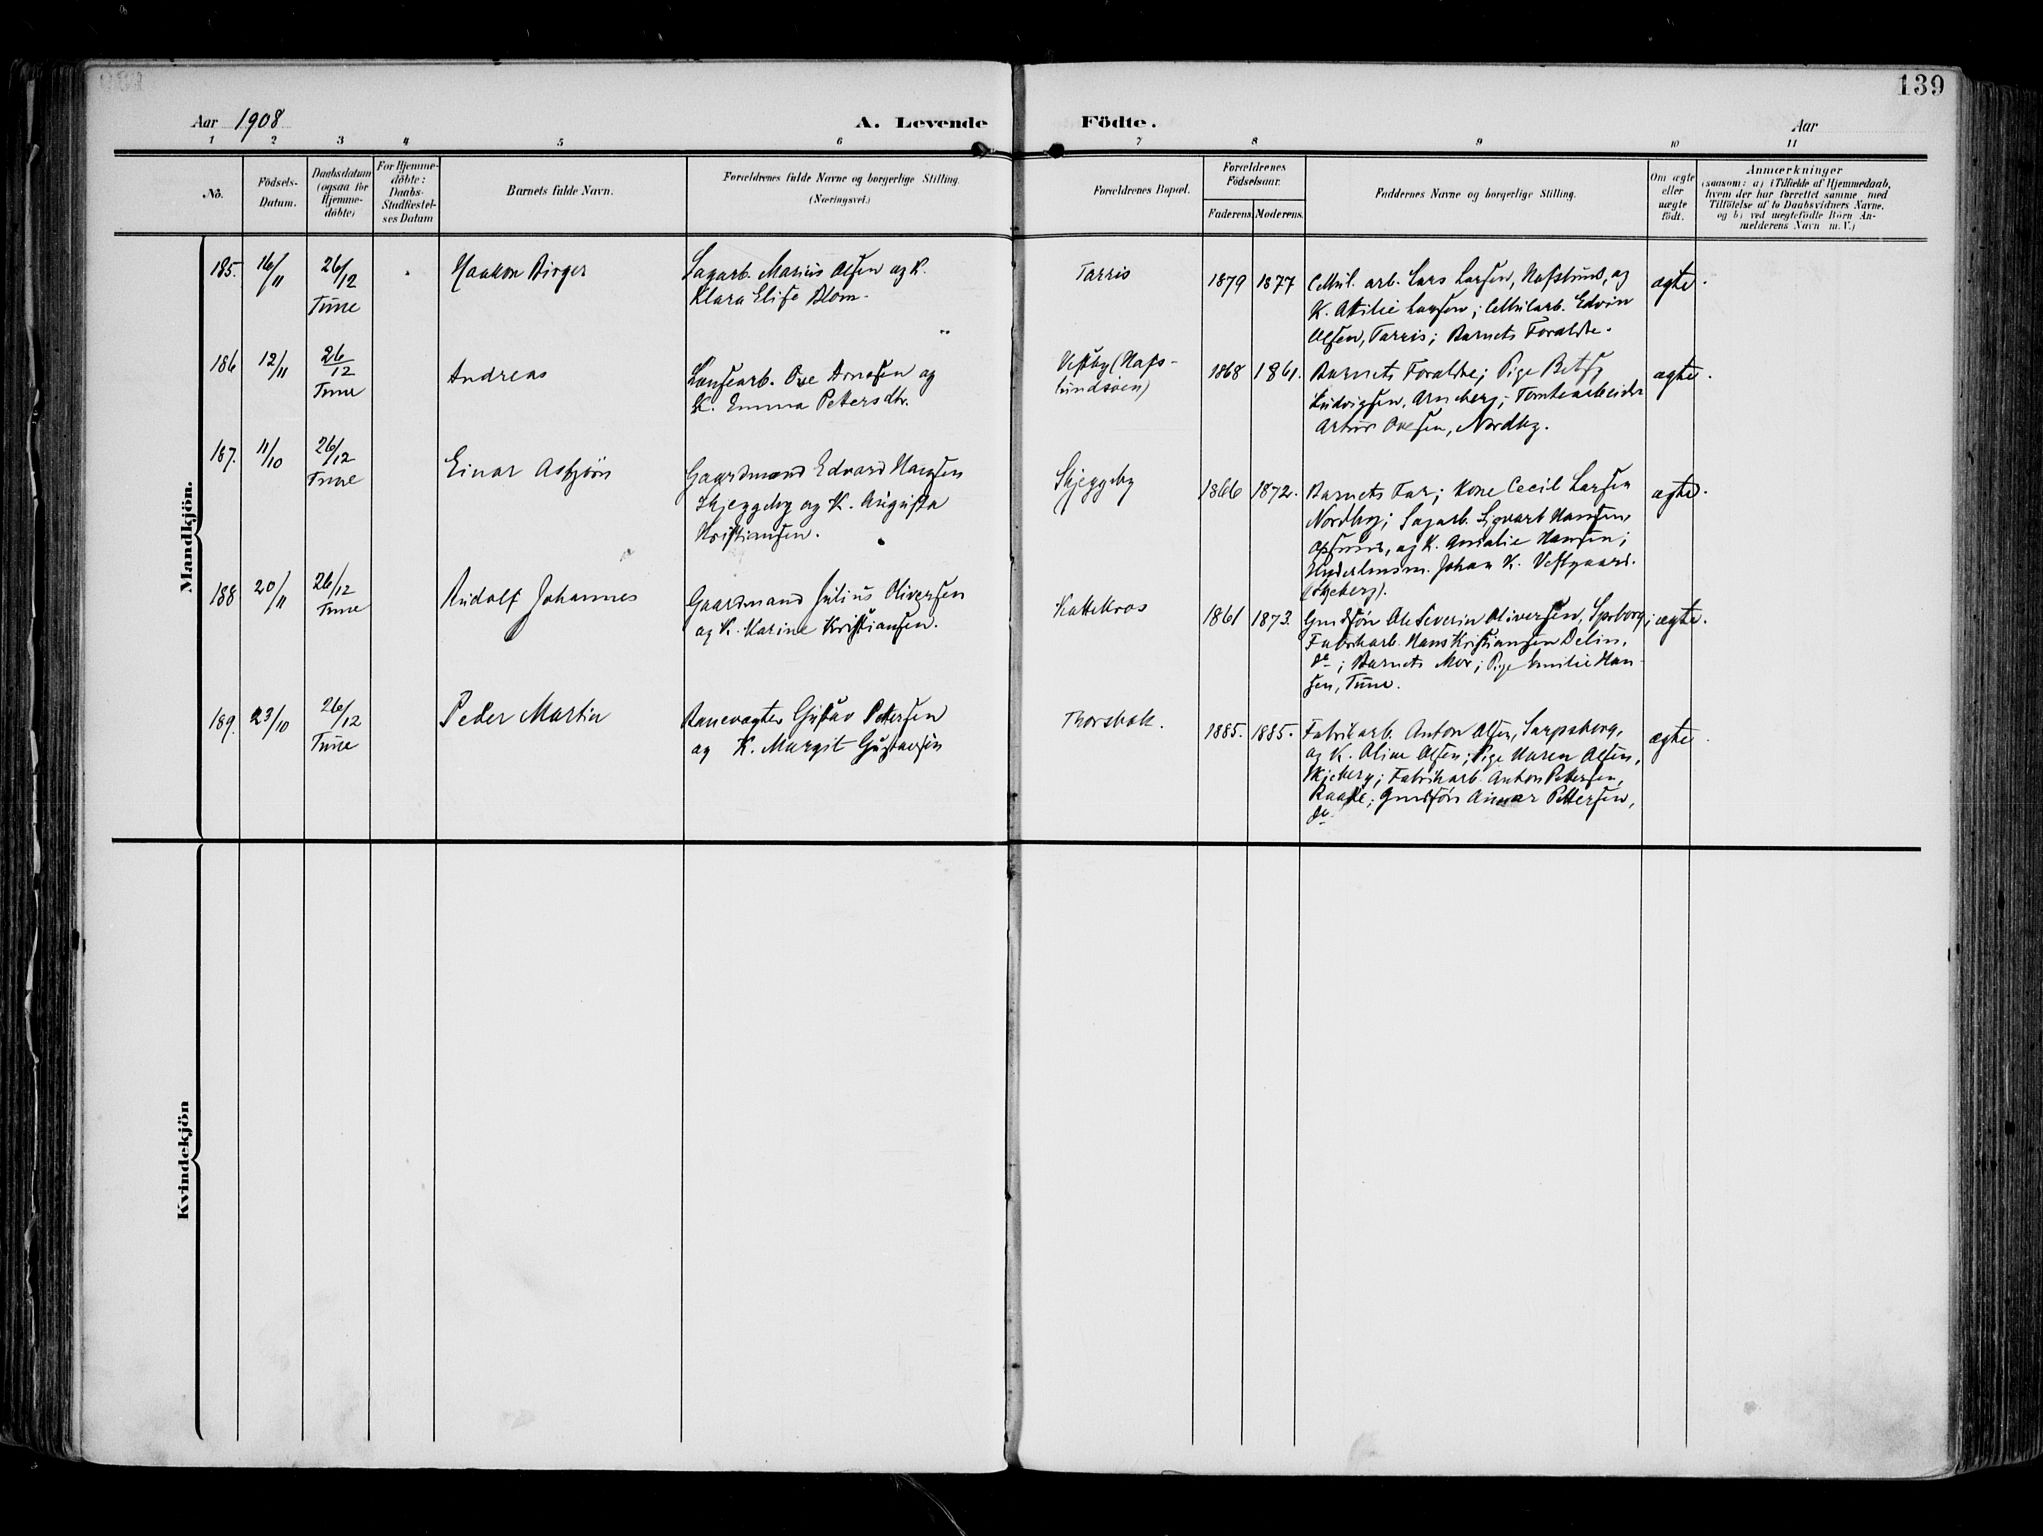 139
Aar 1908 A. Levende Födte. Aar
1 2 3 4 5 6 7 8 9 10 11
No.
Födsels-
Datum.
Daabsdatum
(ogsaa for
Hjemme-
döbte)
For Hjemme-
döbte:
Daabs-
Stadfæstel-
ses Datum
Barnets fulde Navn.
Forældrenes fulde Navne og borgerlige Stilling.
(Næringsvei.)
Forældrenes Bopæl.
Forældrenes
Födselsaar.
Faderens. Moderens.
Faddernes Navne og borgerlige Stilling.
Om ægte
eller
uægte
født.
Anmærkninger
(saasom: a) i Tilfælde af Hjemmedaab,
hvem der har forrettet samme, med
Tilföielse af to Daabsvidners Navne.
og b) ved uægtefödte Börn An-
melderens Navn m. V.)
Mandkjön.
185. 16/11 26/12 Tune
Haakon Birger
Sagarb. Marius Olsen og K.
Klara Elise Blom.
Tarris
1879 1877
Cellul. arb. Lars Larsen, Hafslund, og
K. Attilie Larsen; Cellularb. Edvin
Olsen, Tarris; Barnets Forældre.
ægte.
186 12/11 26/12 Tune
Andreas
Lænsearb. Ove Arnesen og
K. Emma Pettersdtr.
Vestby (Hafs-
lundsøen)
1868 1861.
Barnets Forældre; Pige Betsy
Ludvigsen, Arneberg; Tomtearbeider
Artur Ovesen, Nordby.
ægte.
187. 11/10 26/12 Tune
Einar Asbjørn
Gaardmand Edvard Hansen
Skjeggeby og K. Augusta
Kristiansen.
Skjeggeby
1866 1872.
Barnets Far; Kone Cecil Larsen
Nordby; Sagarb. Sigvart Hansen,
Opsund, og K. Amalie Hansen;
Johan K. Vestgaard.
(Skjeberg).
ægte.
188 20/11 26/12 Tune
Rudolf Johannes
Gaardmand Julius Oliversen
og K. Karine Kristiansen.
Kattekros
1861 1873.
Gmdsøn Ole Severin Oliversen, Sprborg;
Fabrikarb. Hans Kristiansen Delin,
do; Barnets Mor; Pige Emilie Han-
sen, Tune.
ægte.
189. 23/10 26/12 Tune
Peder Martin
Banevagter Gustav Pettersen
og K. Margit Gustavsen
Thorsbak.
1885. 1885.
Fabrikarb. Anton Olsen, Sarpsborg,
og K. Oline Olsen; Pige Maren Olsen,
Skjeberg; Fabrikarb. Anton Pettersen,
Raade; Gmdsøn Ainar Pettersen,
do.
ægte.
Kvindekjön